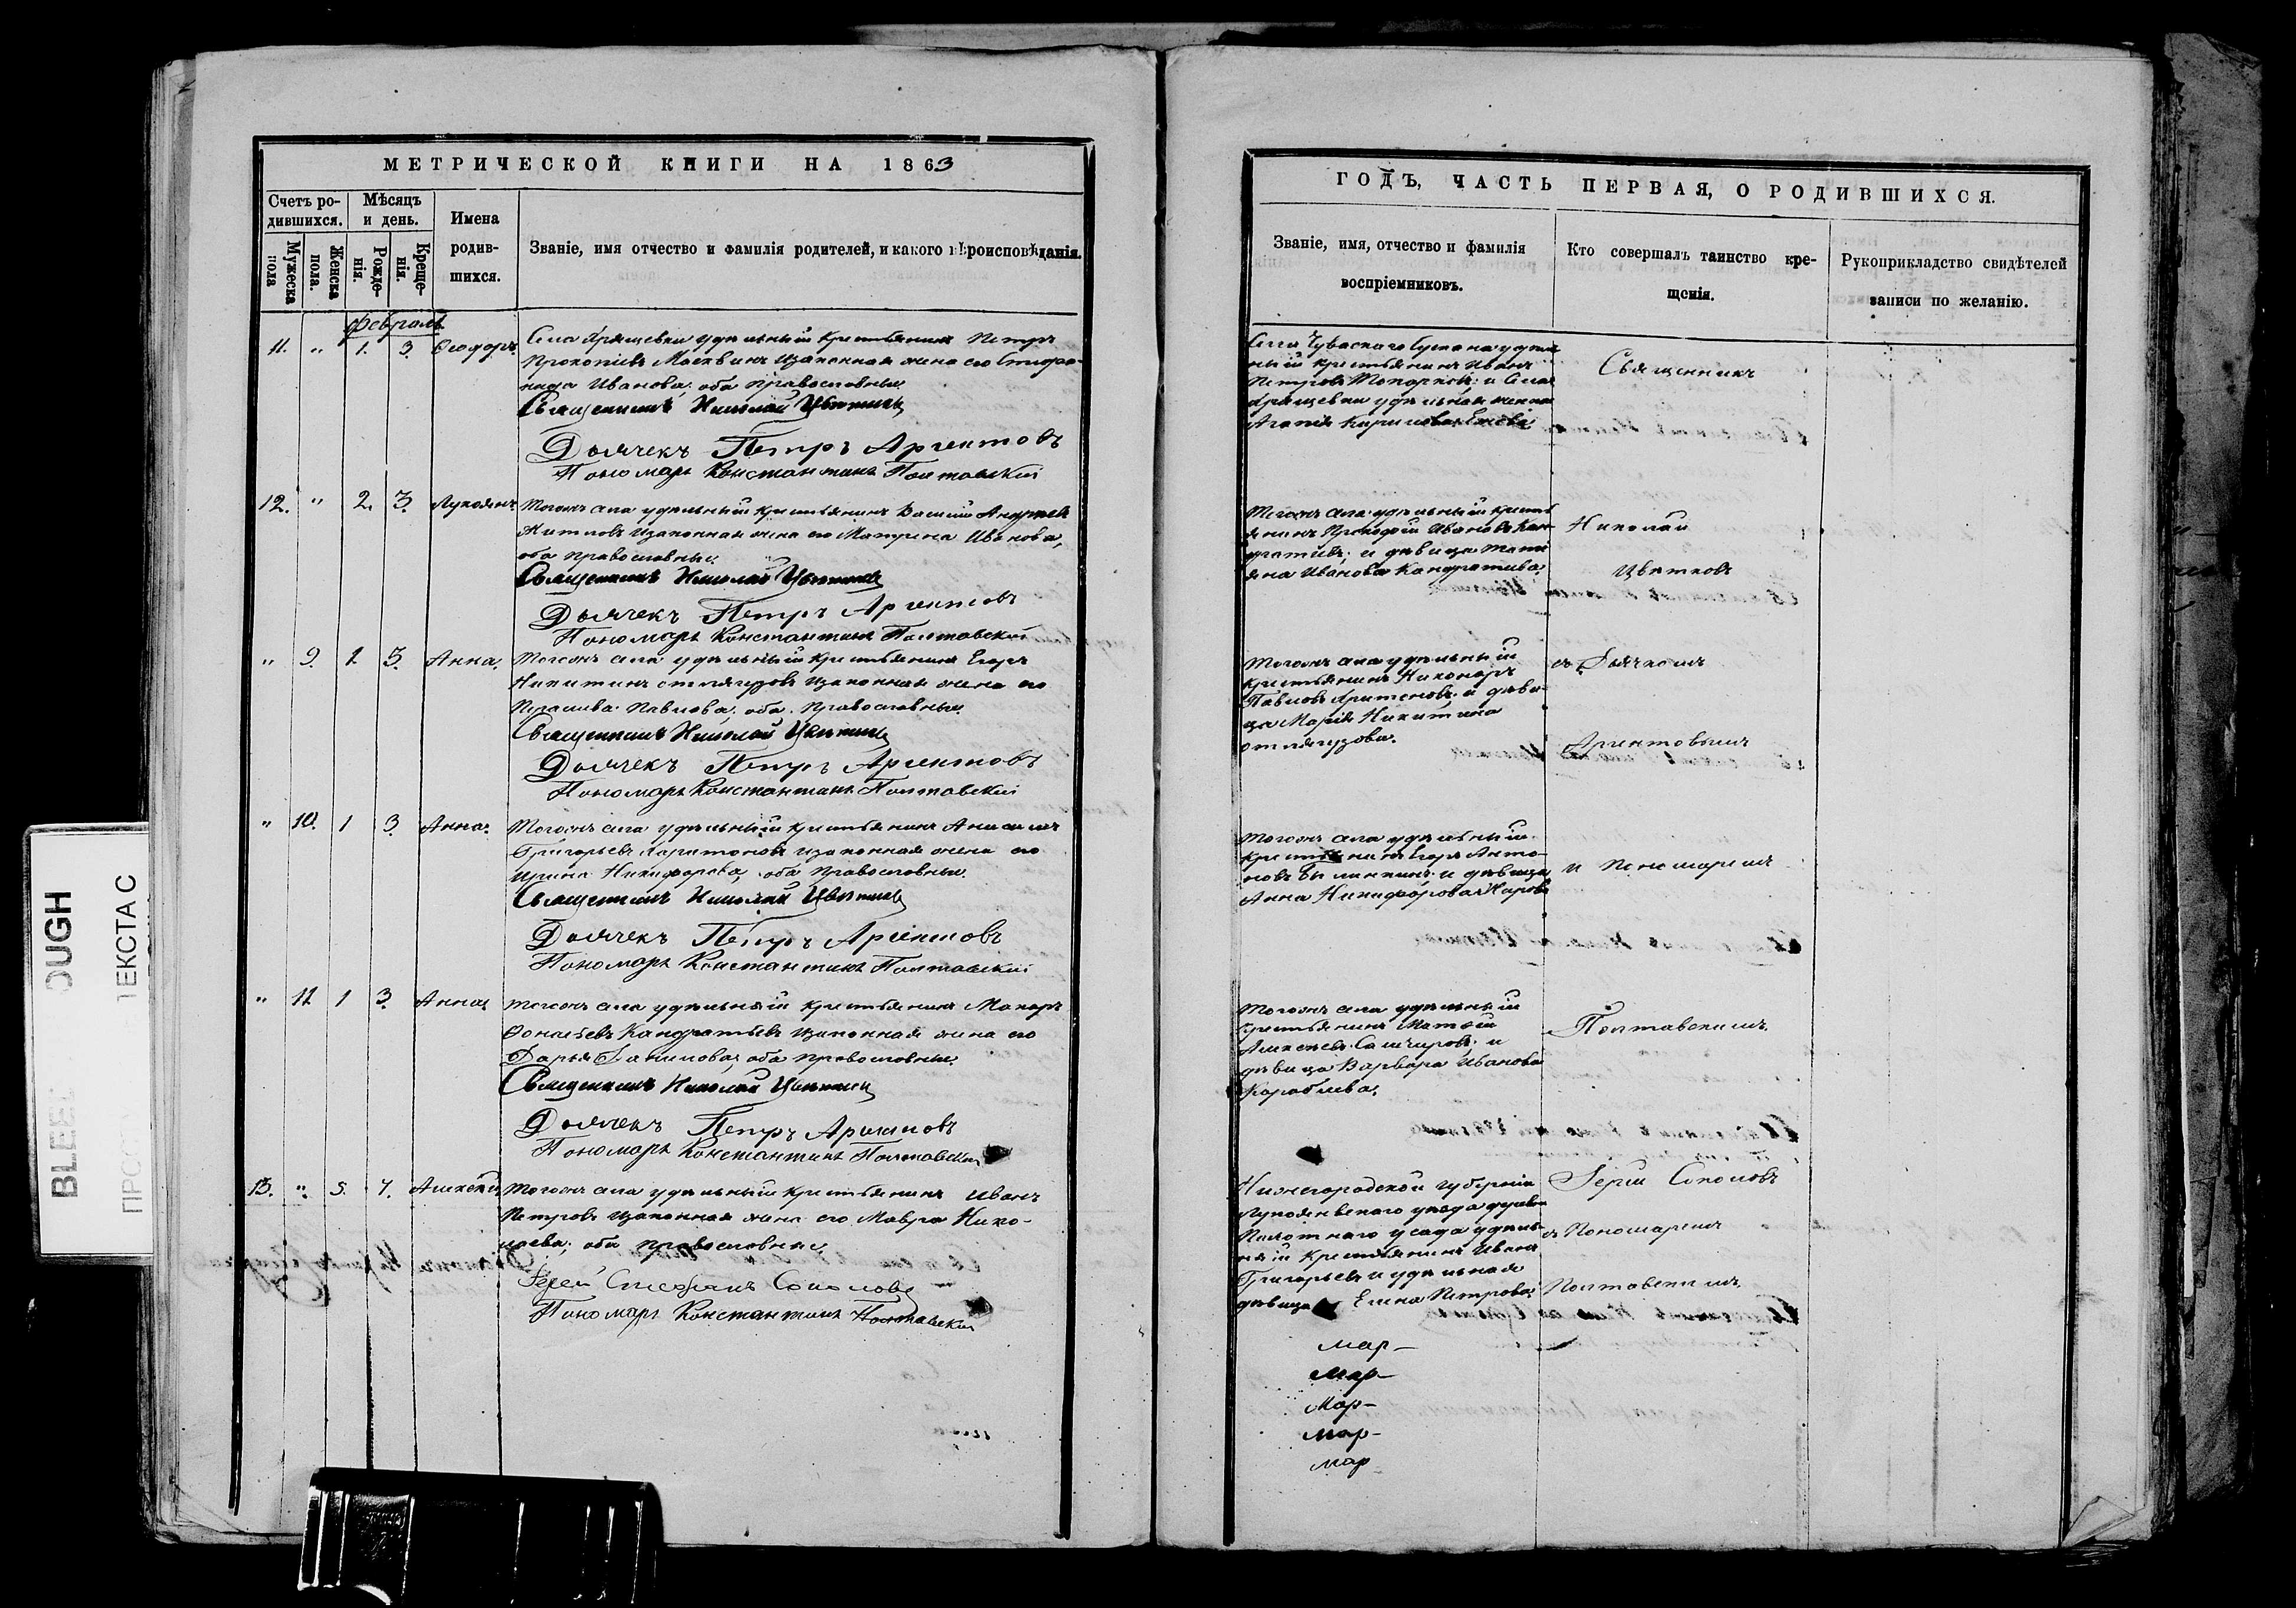 МЕТРИЧЕСКОЙ КНИГИ НА 1863
Счетъ ро-
дившихся.
Мѣсяцъ
и день.
Имена
родив-
шихся.
Званіе, имя отчество и фамилія родителей, и какого вѣроисповѣданія.
Мужеска
пола
Женска
пола.
Рожде-
нія.
Креще-
нія.
Февраль
11. " 1. 3. Ѳеодоръ.
Села Хрящевки удѣльный крестьянинъ Петръ
Прокопіевъ Москвинъ и законная жена его Стефа-
нида Иванова, оба православные.
Священникъ Николай Цвѣтковъ
Дьячекъ Петръ Аргентовъ
Пономарь Константинъ Полтавскій
12. " 2. 3. Лукоянъ
Тогожъ села удѣльный крестьянинъ Василій Андреевъ
и законная жена его Матрена Иванова,
оба православные.
Священникъ Николай Цвѣтковъ
Дьячекъ Петръ Аргентовъ
Пономарь Константинъ Полтавскій
" 9. 1. 3. Анна.
Тогожъ села удѣльный крестьянинъ Егоръ
Никитинъ и законная жена его
Павлова, оба православные.
Священникъ Николай Цвѣтковъ
Дьячекъ Петръ Аргентовъ
Пономарь Константинъ Полтавскій
" 10. 1 3. Анна.
Тогожъ села удѣльный крестьянинъ Анисимъ
Григорьевъ Харитоновъ и законная жена его
Ирина Никифорова, оба православные.
Священникъ Николай Цвѣтковъ
Дьячекъ Петръ Аргентовъ
Пономарь Константинъ Полтавскій
" 11 1 3. Анна
Тогожъ села удѣльный крестьянинъ Макаръ
Кандратьевъ и законная жена его
Дарья Данилова, оба православные.
Священникъ Николай Цвѣтковъ
Дьячекъ Петръ Аргентовъ
Пономарь Константинъ Полтавскій
13. " 5. 7. Алексѣй
Тогожъ села удѣльный крестьянинъ Иванъ
Петровъ и законная жена его Мавра Нико-
лаева, оба православные.
Іерей Стефанъ Соколовъ
Пономарь Константинъ Полтавскій
ГОДЪ, ЧАСТЬ ПЕРВАЯ, О РОДИВШИХСЯ.
Званіе, имя, отчество и фамилія
воспріемниковъ.
Кто совершалъ таинство кре-
щенія.
Рукоприкладство свидѣтелей
записи по желанію.
Села удѣль-
ный крестьянинъ Иванъ
Петровъ Топорковъ и села
Хрящевки удѣльная
Агапія Кирилова
Тогожъ села удѣльный кресть-
янинъ Ивановъ Кан-
дратьевъ и дѣвица Тать-
яна Иванова Кандратьева.
Тогожъ села удѣльный
крестьянинъ Никоноръ
Павловъ и дѣви-
ца Марія Никитина
Тогожъ села удѣльный
крестьянинъ Егоръ Анто-
новъ и дѣвица
Анна Никифорова
Тогожъ села удѣльный
крестьянинъ Матвѣй
Алексѣевъ и
дѣвица Варвара Иванова
Кораблева.
Нижегородской губерніи
Лукояновскаго уѣзда
удѣль-
ный крестьянинъ Иванъ
Григорьевъ и удѣльная
дѣвица Елена Петрова.
Священникъ
Николай
Цвѣтковъ
съ Дьячкомъ
Аргентовымъ
и Пономаремъ
Полтавскимъ.
Іерей Соколовъ
съ Пономаремъ
Полтавскимъ.
Мар-
Мар-
Мар-
Мар-
Мар
BLEED
OUGH
ТЕКСТА С